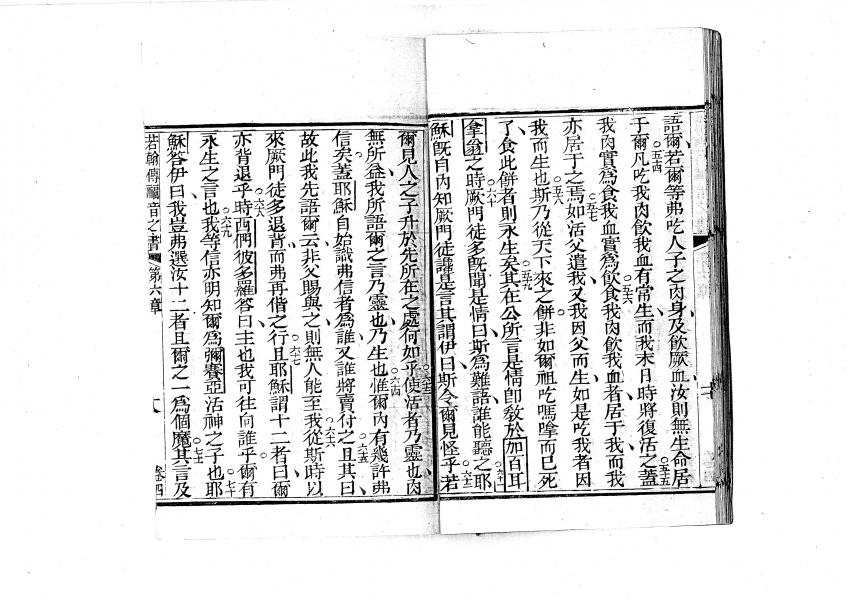 語爾若爾等弗吃人子之肉身及飲厥血汝則無生命居
五四
五五
于爾凡吃我肉飲我血有常生而我末日時將復活之蓋
我肉實為食我血實為飲食我肉飲我血者居于我而我
五六
五七
亦居于之焉如活父遣我又我因父而生如是吃我者因
我而生也斯乃從天下來之餅非如爾祖吃嗎嗱而已死
五八
了食此餅者則永生矣其在公所言是情即敎於加百耳
五九
拿翁之時厥門徒多旣聞是情曰斯為難語誰能聽之耶
六十
六一
穌旣自內知厥門徒譏是言其謂伊曰斯令爾見怪乎若
六二
爾見人之子升於先所在之處何如乎使活者乃靈也肉
六三
無所益我所語爾之言乃靈也乃生也惟爾內有幾許弗
六四
信矣蓋耶穌自始識弗信者為誰又誰將賣付之且其曰
六五
故此我先語爾云非父賜與之則無人能至我從斯時以
六六
來厥門徒多退背而弗再偕之行且耶穌謂十二者曰爾
六七
亦背退乎時西們彼多羅答曰主也我可往向誰乎爾有
六八
永生之言也我等信亦明知爾為彌賽亞活神之子也耶
六九
七十
穌答伊曰我豈弗選汝十二者且爾之一為個魔其言及
七一
若翰傳福音之書 第六章 卷四